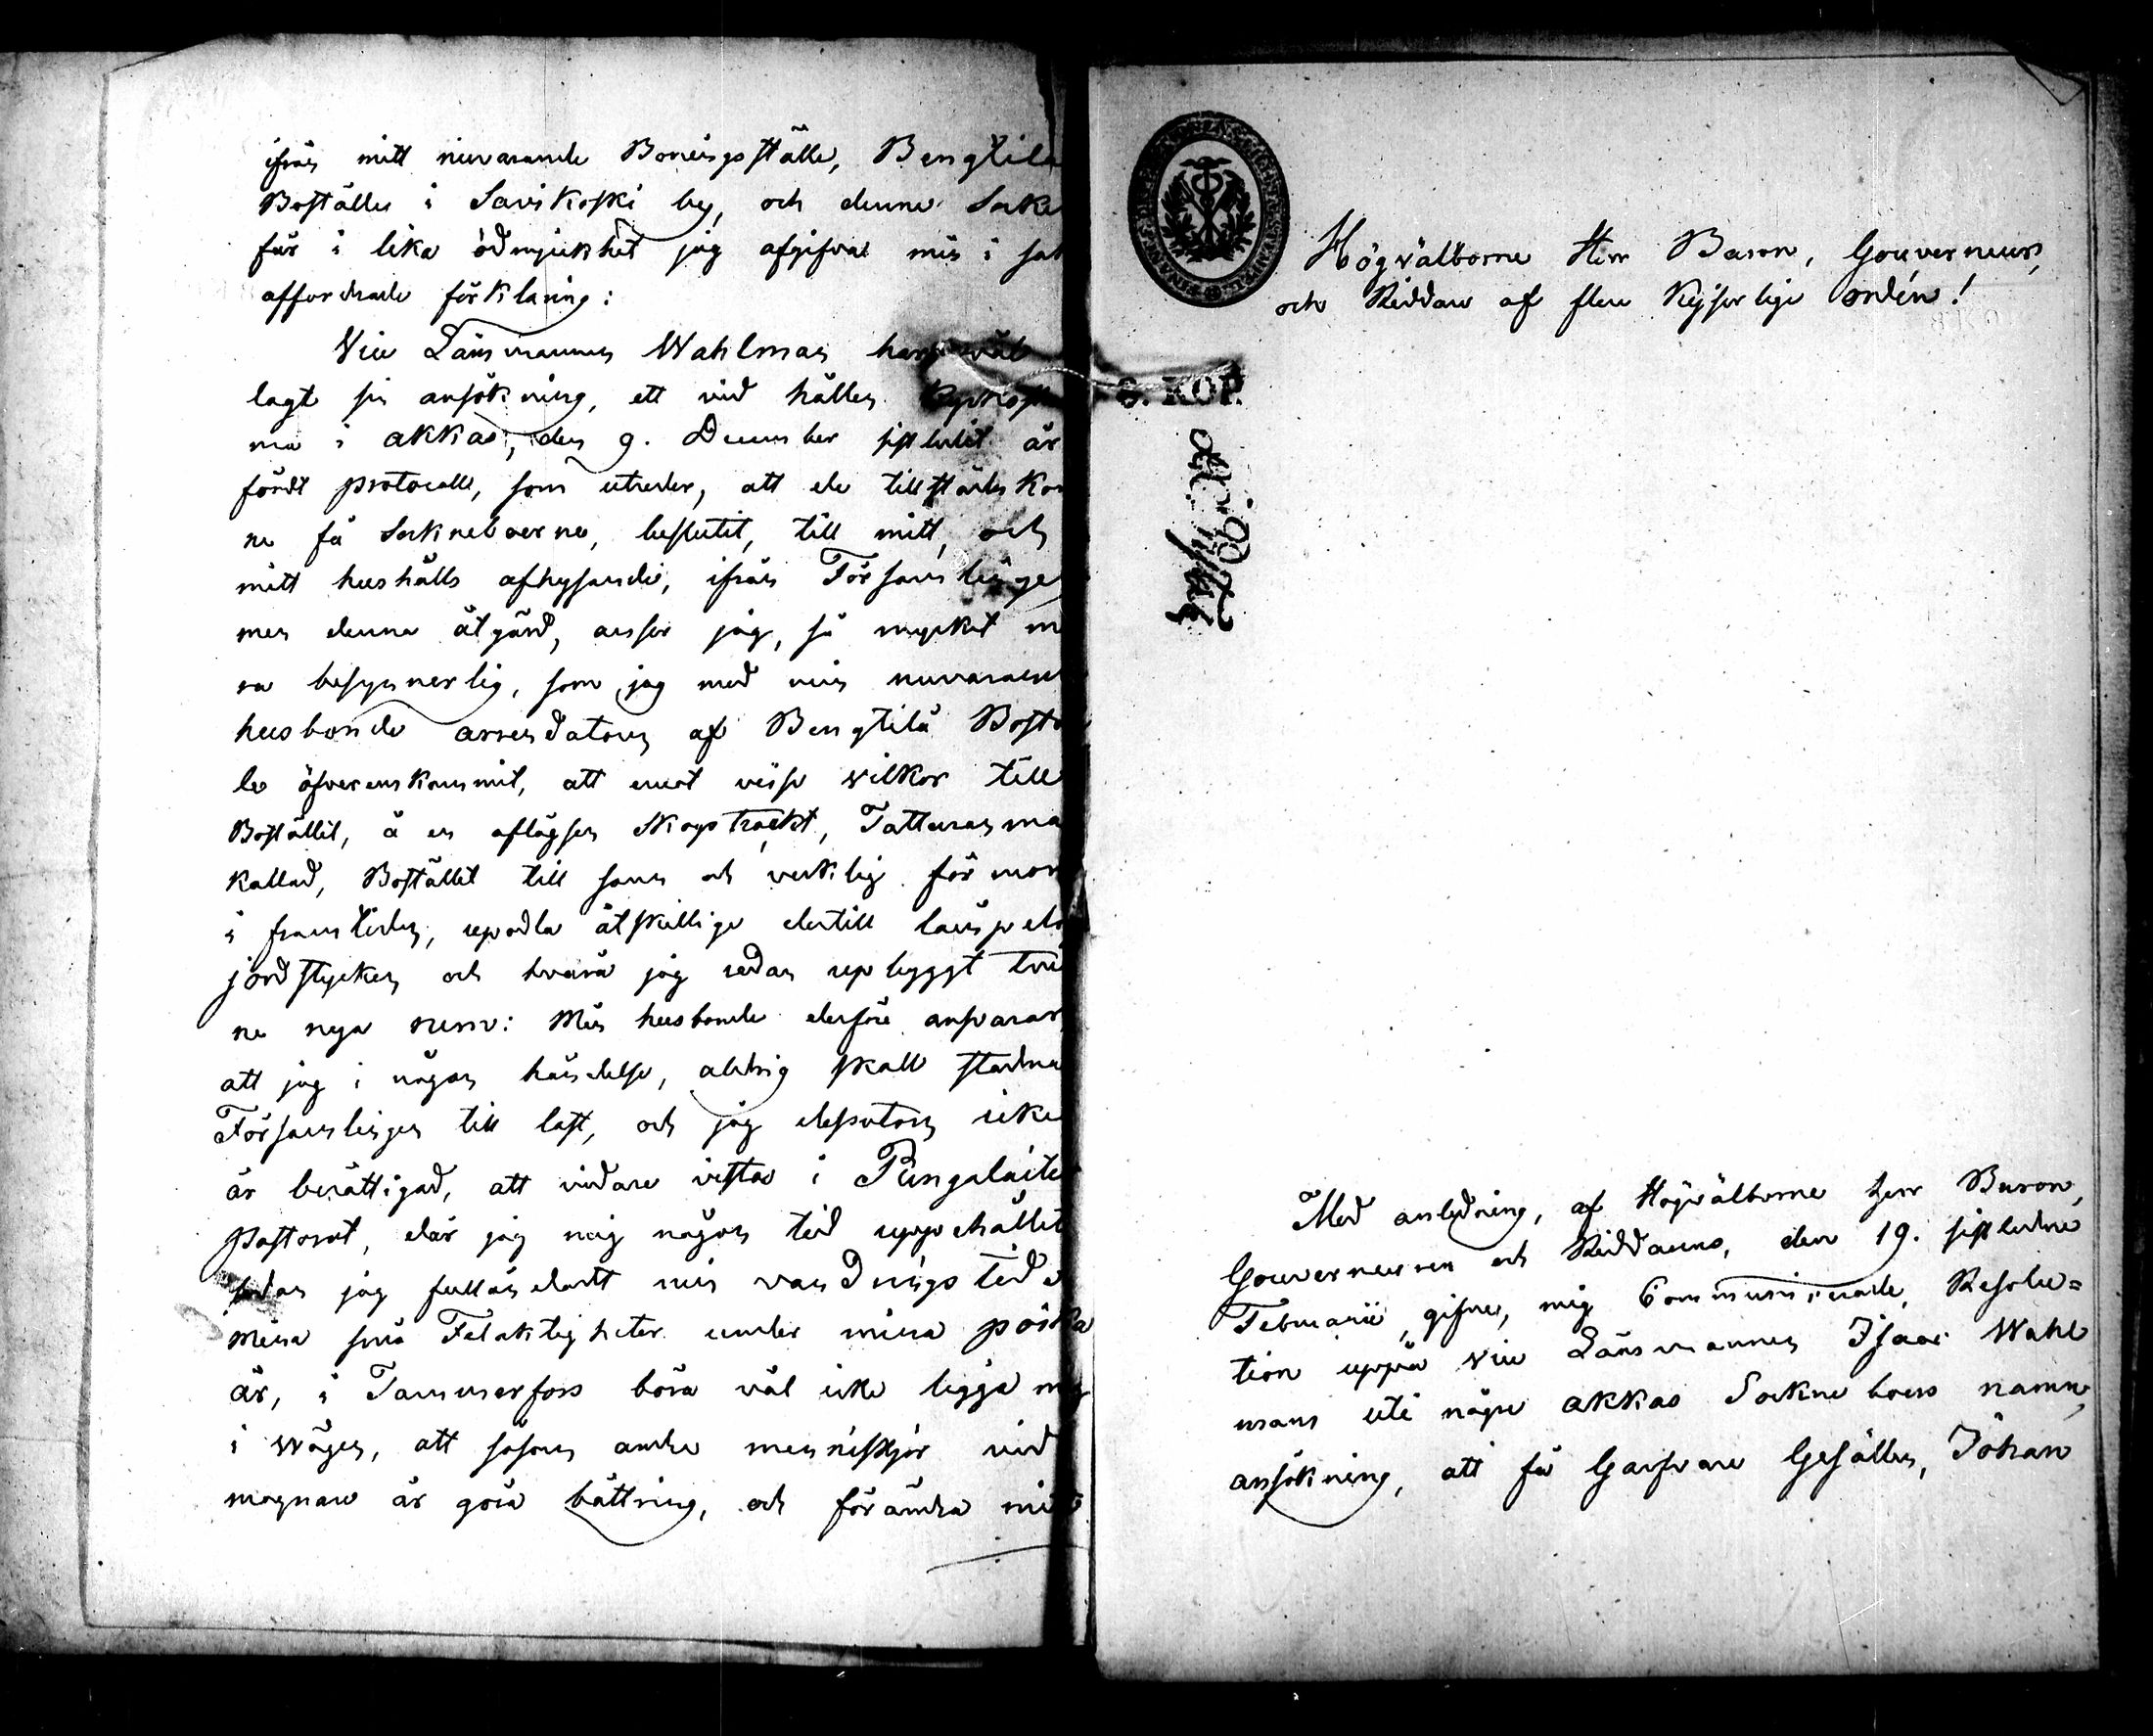 ifrån mitt nuvarande Boningsställe, Bengtilä
Boställe i Savikoski by, och denne Sokn
får i lika ödmjukhet jag afgifva min i sak
affordrade förklaring:
Vice Länsmannen Wahlman har väl
lagt sin ansökning, ett vid hållen
ma i Akkas, den 9. December sistledit år
fördt protocoll, som utreder, att de tillstädes kom
ne få Sokneboerne, beslutit, till mitt, och
mitt hushålls afhysande, ifrån Församlinge
men denna åtgärd, anser jag, så mycket m
ra besynnerlig, som jag med min nuvarand
husbonde arrendatorn af Bengtilä Bostä
le öfverenskommit, att emot visse vilkor till
Bostället, å en aflägsen Skogstrackt, Tatturanma
kallad, Bostället till sann och verklig förmon
i framtiden, upodla åtskillige dertill lämpel
jordstycken och hvarå jag redan upbyggt tvä
ne nya rum: Min husbonde derföre ansvarar,
att jag i någon händelse, aldrig skall stadna
Församlingen till last, och jag dessutom icke
är berättigad, att vidare vistas i Pungalaite
Pastorat, där jag mig någon tid uppehållit
sedan jag fulländadt min vandringstid
Mina små Felaktigheter under mina pojka
år, i Tammerfors böra väl icke ligga mig
i vägen, att såsom andre menniskjor vid
mognare år göra bättring, och förändra mitt

Högvälborne Herr Baron, Gouverneur,
och Riddare af flere Kejserlige Ordén!
6. KOP.
Med anledning, af Högvälborne herr Baron,
Gouverneuren och Riddarens, den 19. sistledne
Februarii gifne, mig Communicerade, Resolu=
tion uppå Vice Länsmannen Isaac Wahl
mans uti någre Akkas Sockne boers namn,
ansökning, att få Garfvare Gesällen, Johan